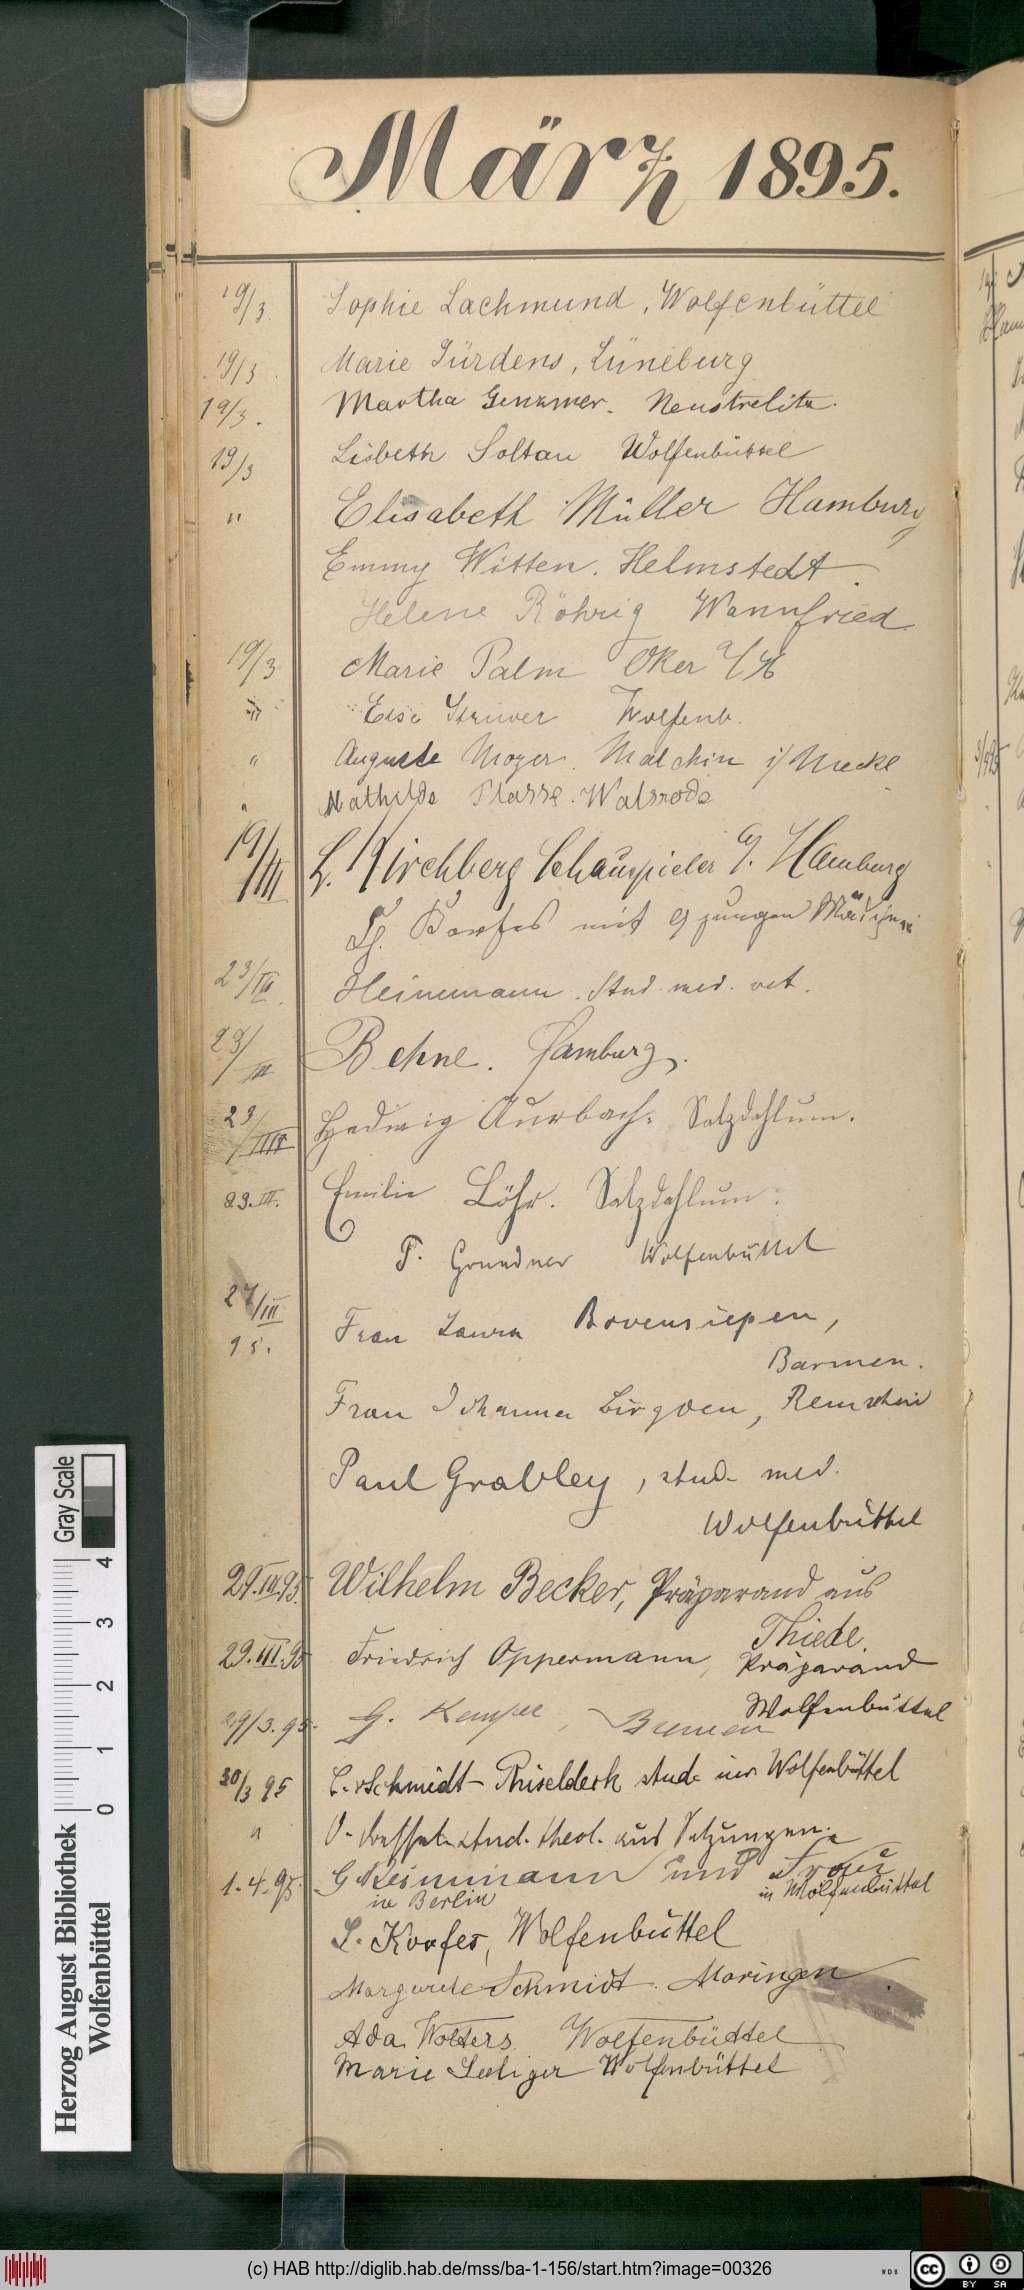 März 1895.
19/3. Sophie Lachmund, Wolfenbüttel
19/3. Marie Jürdens, Lüneburg
19/3. Martha Genzmer. Neustrelitz.
19/3 Lisbeth Soltau Wolfenbüttel
" Elisabeth Müller Hamburg
Emmy Witten. Helmstedt.
Helene Röhrig Wannfried.
19/3 Marie Palm Oker a/H
" Else Strüver Wolfenb.
" Auguste Moyer. Malchin i/ Meckl
" Mathilde Plasse. Walsrode
19/III L. Kirchberg Schauspieler Hamburg
mit 9 jungen
23/III. Heinemann. Stud. med. vet.
23/III Behne. Hamburg.
23/III Hedwig Aurbach. Salzdahlum.
23.III. Emilie Löhr. Salzdahlum.
F. Grundner Wolfenbüttel
27/III
95. Frau Laura Bovensiepen,
Barmen.
Frau Johanna Birgden, Remscheid
Paul Grabley, stud. med.
Wolfenbüttel
29.III.95. Wilhelm Becker, Präparand aus
Thiede.
29.III.95 Friedrich Oppermann, Präparand
Wolfenbüttel
29/3.95. G. Kempe, Bremen
30/3 95 C. Schmidt- stud. iur. Wolfenbüttel
" O. stud. theol. aus
1.4.95. G. und Frau
in Berlin in Wolfenbüttel
L. Korfes, Wolfenbüttel
Margarete Schmidt. Moringen.
Ada Wolters. Wolfenbüttel
Marie Seeliger Wolfenbüttel
Herzog August Bibliothek
Wolfenbüttel
0 1 2 3 4
Gray Scale
(c) HAB http://diglib.hab.de/mss/ba-1-156/start.htm?image=00326
CC BY SA